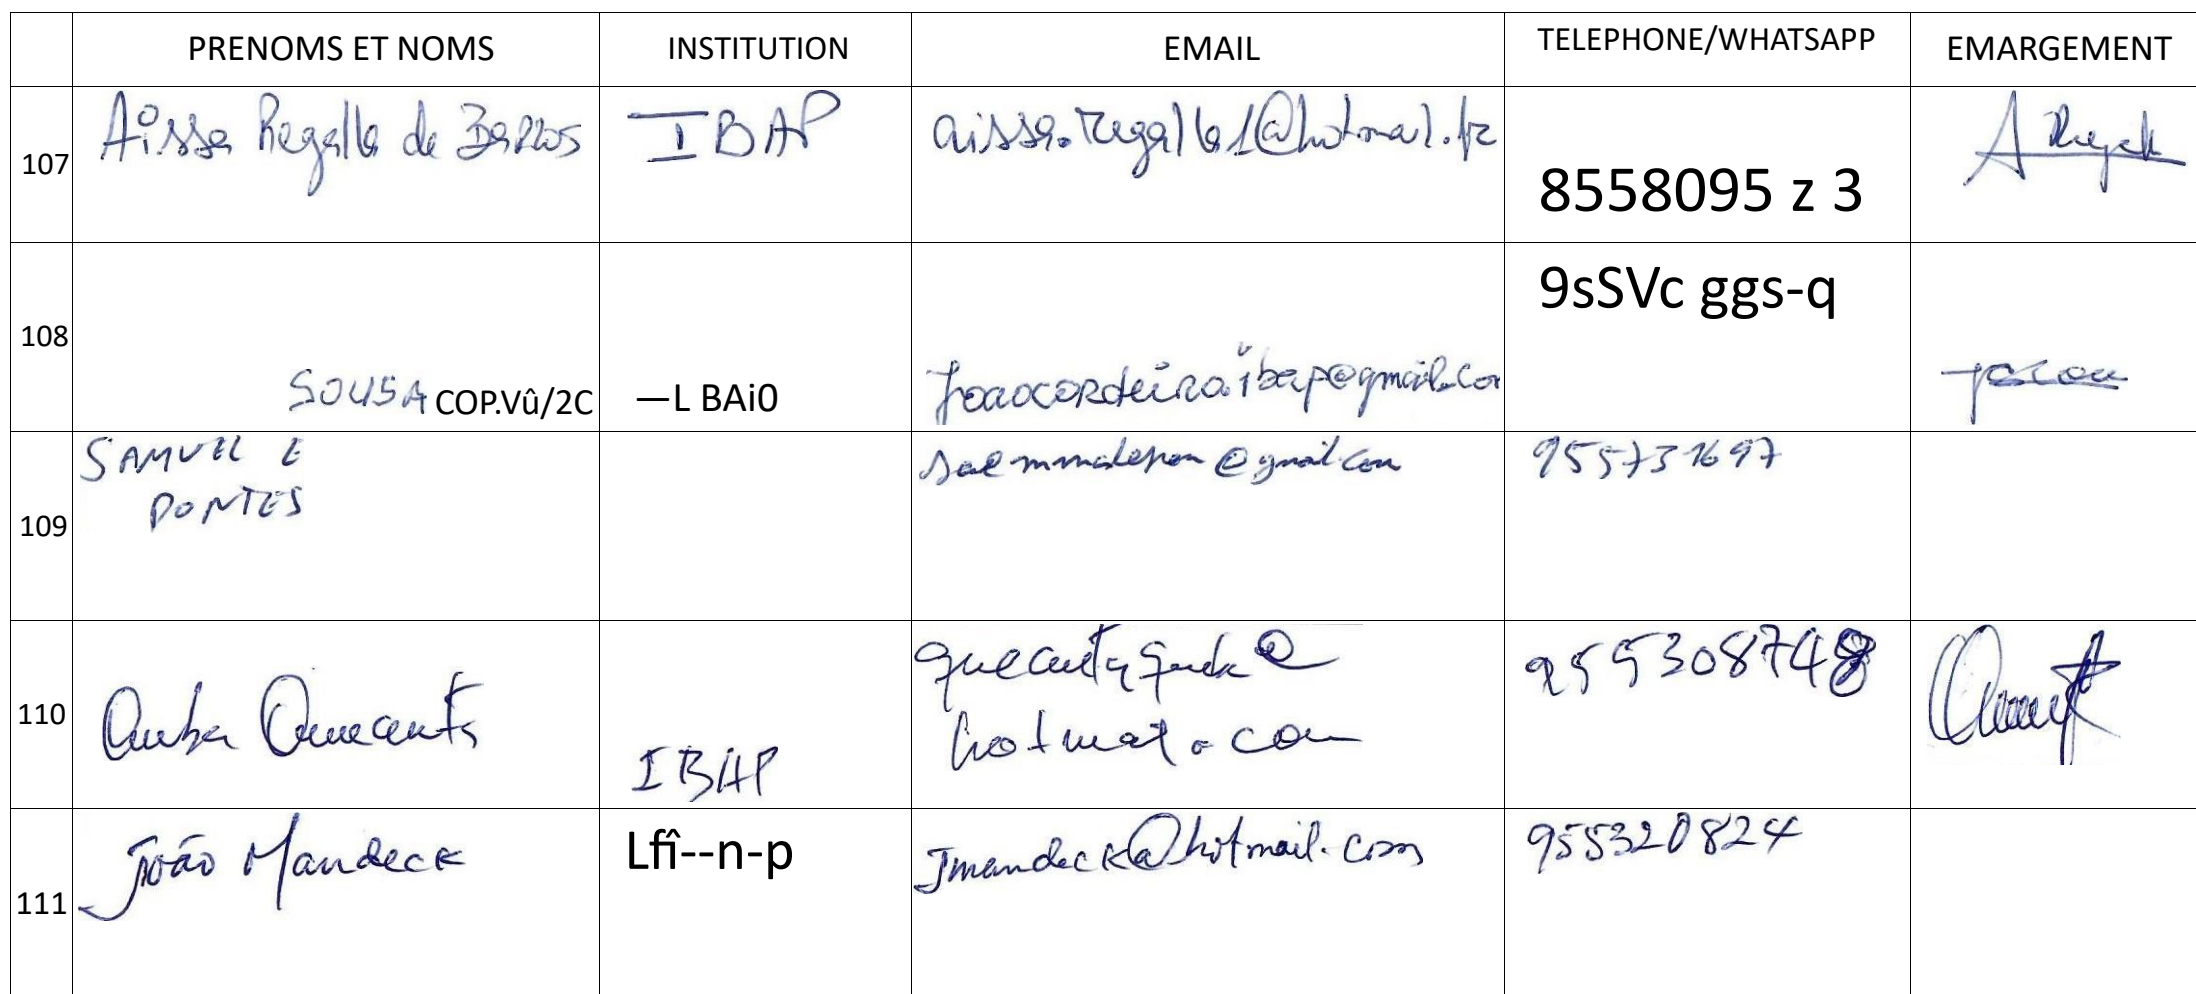 PRENOMS ET NOMS INSTITUTION EMAIL TELEPHONE/WHATSAPP EMARGEMENT
107 Aissa Regalla de Barros IBAP aissa.regalla1@hotmail.fr 8558095 z 3
108 SOUSA COP.Vû/2C —L BAi0 joaocordeiro.ibap@gmail.com 9sSVc ggs-q
109 SAMUEL E 955731697
PONTES
110 IBAP 955308748
hotmail.com
111 João Mandeck Lfî--n-p Jmandeck@hotmail.com 955320824